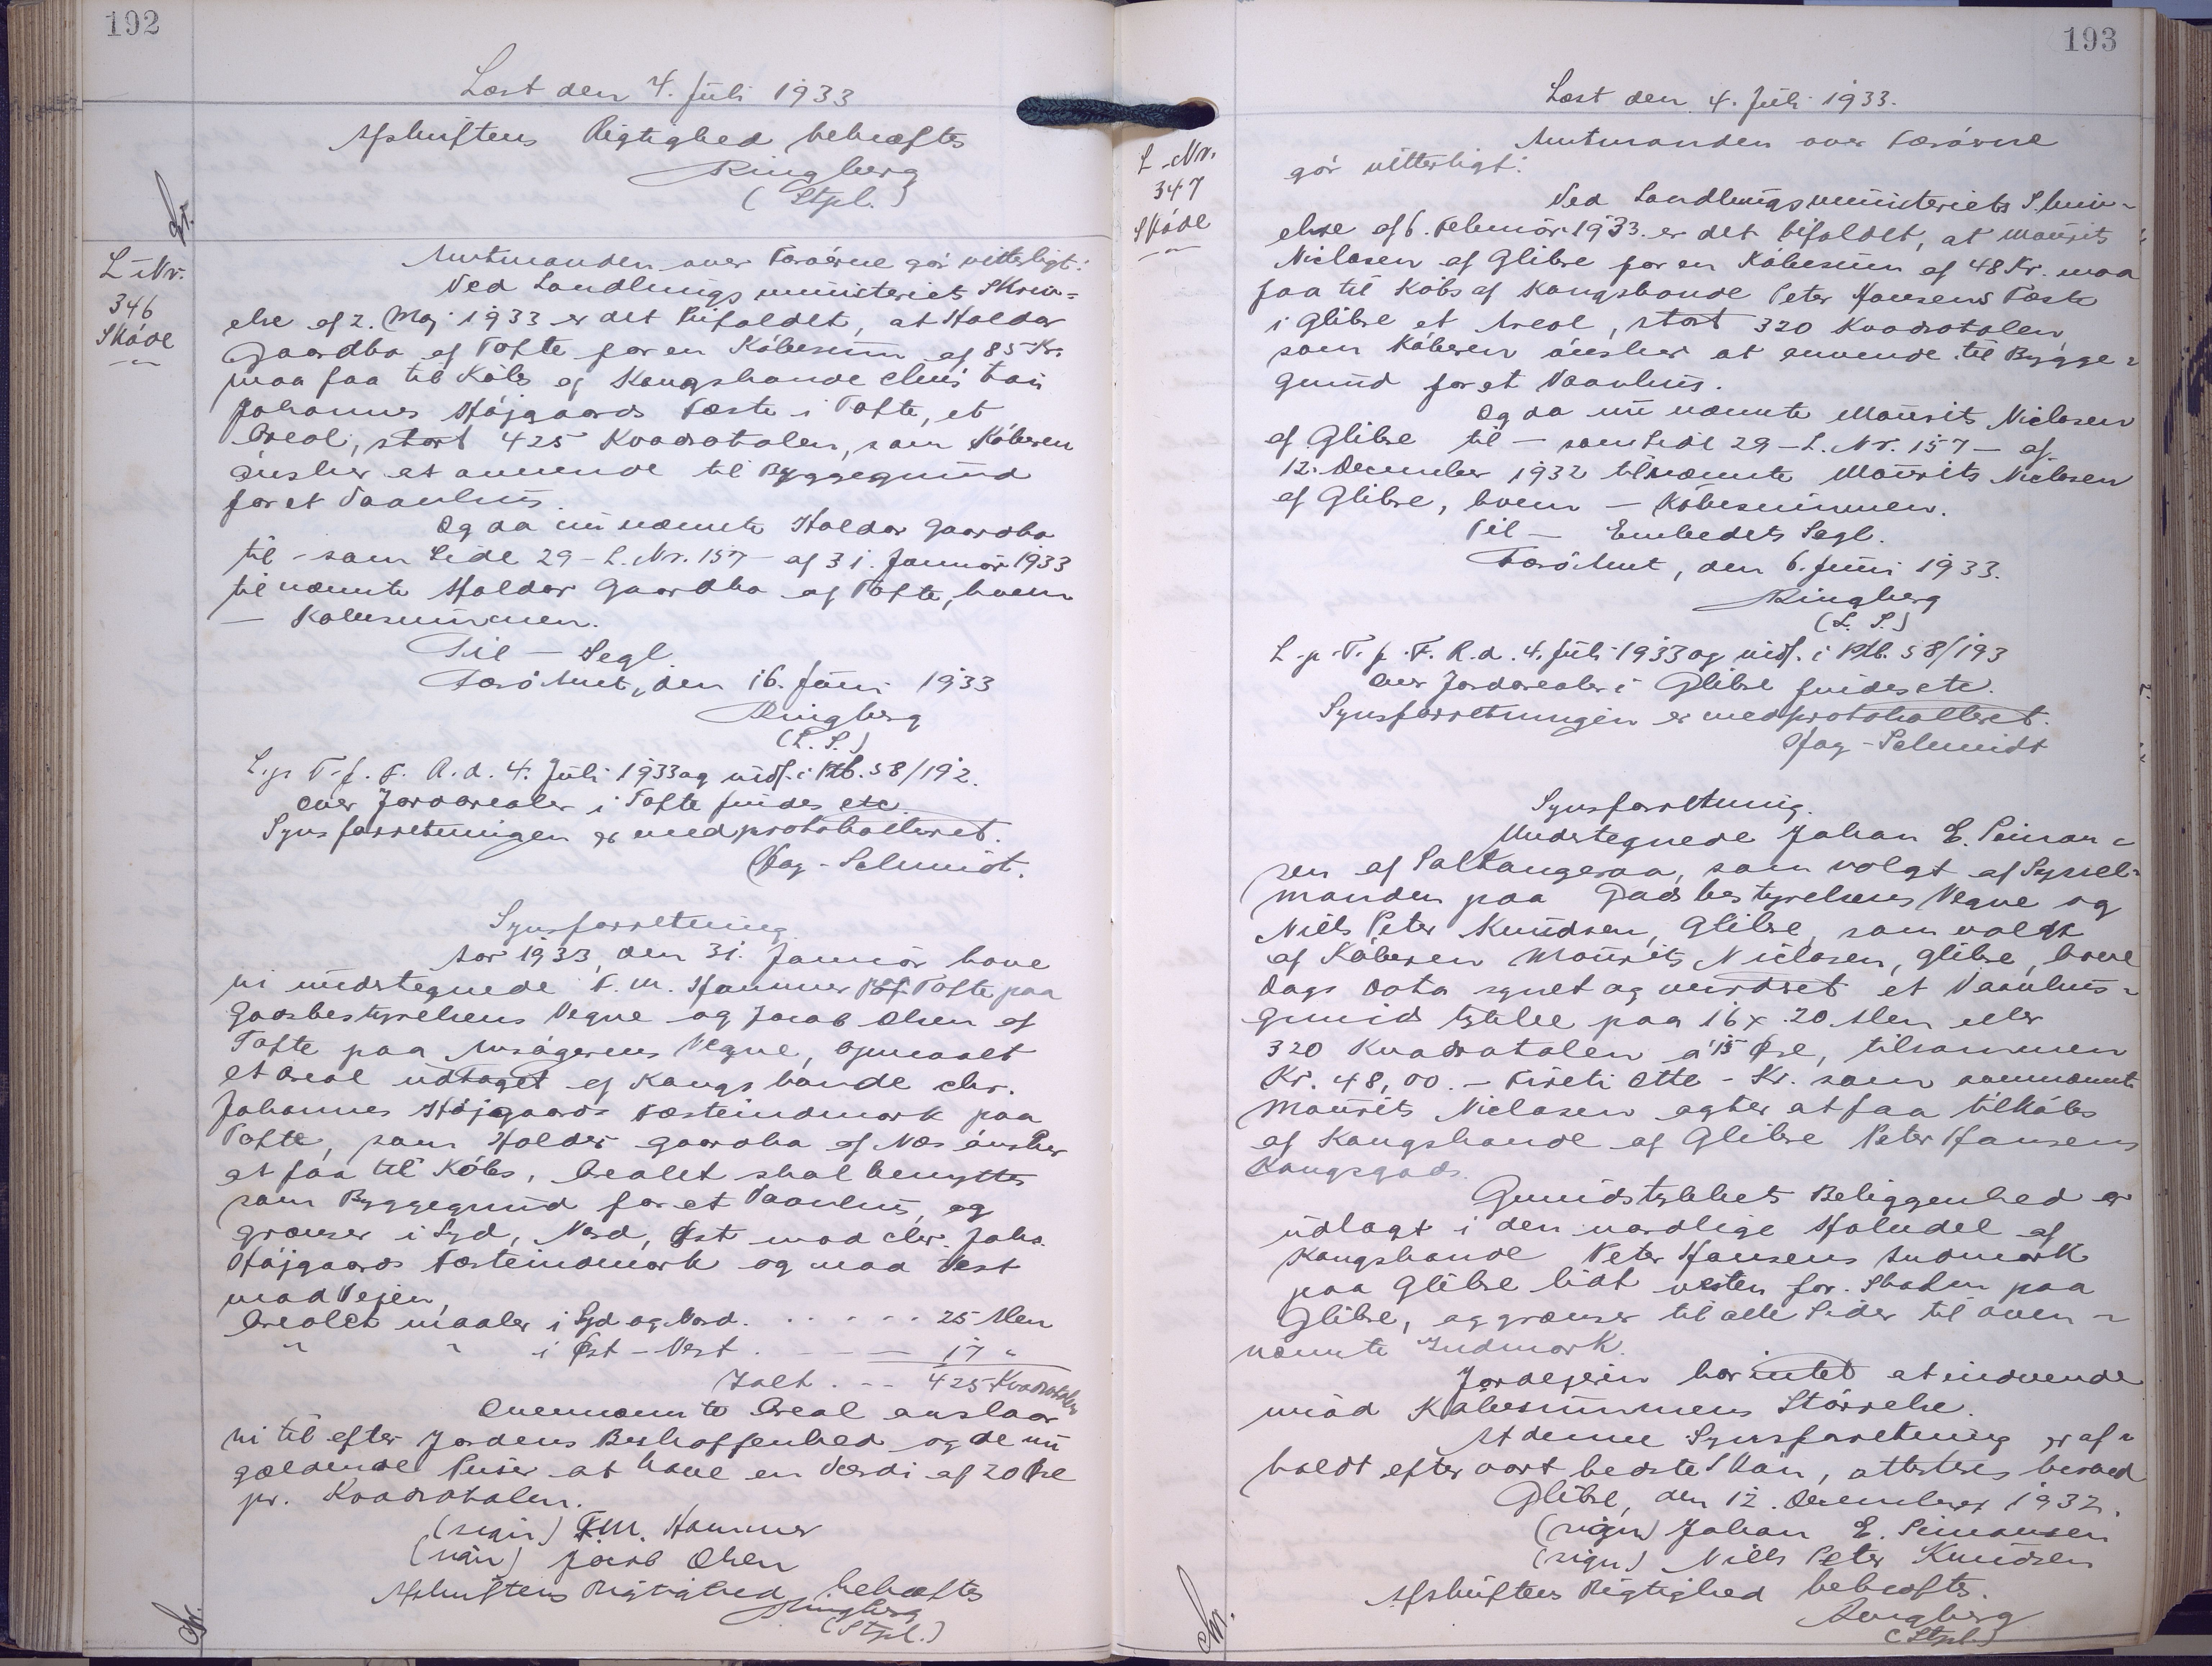 192
Læst den 4. Juli 1933
Afskriftens Rigtighed bekræftes
Ringberg
(Stpl.)
L-Nr.
346
Skøde
Amtmanden over Færøerne gør vitterligt:
Ved Landbrugsministeriets Skriv=
else af 2. Maj 1933 er det bifaldet, at Haldor
Gaardbo af Tofte for en Købesum af 85 Kr.
maa faa til Købs af Kongsbonde
Johannes Højgaards Fæste i Tofte, et
Areal, stort 425 Kvadratalen, som Køberen
ønsker at anvende til Byggegrund
for et Vaanhus.
Og da nu nævnte Haldor Gaardbo
til - som Side 29 - L. Nr. 157 - af 31. Januar 1933
til nævnte Haldor Gaardbo af Tofte, hvem
— Købesummen.
Til — Segl.
Færø Amt, den 16. Juni 1933
Ringberg
(L. S.)
L. p. T. f. F. R. d. 4. Juli 1933 og indf. i Ptb. 58/192.
Over Jordarealer i Tofte findes etc.
Synsforretningen er medprotokolleret.
Vag-Schmidt.
Synsforretning
Aar 1933, den 31. Januar have
vi undertegnede F. M. Hammer Tofte paa
Godsbestyrelsens Vegne og Jacob Olsen af
Tofte paa Ansøgerens Vegne, opmaalt
et Areal udtaget af Kongsbonde Chr.
Johannes Højgaards Fæsteindmark paa
Tofte, som Haldor Gaardbo af Næs ønsker
at faa til Købs, Arealet skal benyttes
som Byggegrund for et Vaanhus, og
grænser i Syd, Nord, Øst mod Chr. Johs.
Højgaards Fæsteindmark og mod Vest
mod Vejen,
Arealet maaler i Syd og Nord. . . . . . 25 Alen
" " i Øst - Vest . — — 17 "
Ialt. . — 425 Kvadratalen
Ovennævnte Areal anslaar
vi til efter Jordens Beskaffenhed og de nu
gældende Priser at have en Værdi af 20 Øre
pr. Kvadratalen.
(sign) F.M. Hammer
(sign) Jacob Olsen
Afskriftens Rigtighed bekræftes
Ringberg
(Stpl.)
193
Læst den 4. Juli 1933.
L-Nr.
347
Skøde
Amtmanden over Færøerne
gør vitterligt:
Ved Landbrugsministeriets Skriv=
else af 6. Februar 1933. er det bifaldet, at Mourits
Niclasen af Glibre for en Købesum af 48 Kr. maa
faa til Købs af Kongsbonde Peter Hansens Fæste
i Glibre et Areal, stort 320 Kvadratalen,
som Køberen ønsker at anvende til Bygge=
grund for et Vaanhus.
Og da nu nævnte Mourits Niclasen
af Glibre til — som Side 29 - L. Nr. 157 - af
12. December 1932 til nævnte Mourits Niclasen
af Glibre, hvem — Købesummen.
Til — Embedets Segl.
Færø Amt, den 6. Juni 1933.
Ringberg
(L. S.)
L. p. T. f. F. R. d. 4. Juli 1933 og indf. i Ptb. 58/193
Over Jordarealer i Glibre findes etc.
Synsforretningen er medprotokolleret.
Vag-Schmidt
Synsforretning.
Undertegnede Johan E. Simon=
sen af Saltangeraa, som valgt af Syssel=
manden paa Godsbestyrelsens Vegne og
Niels Peter Knudsen, Glibre, som valgt
af Køberen Mourits Niclasen, Glibre, have
Dags Dato synet og vurdret et Vaanhus=
grund stykke paa 16 x 20 Alen eller
320 Kvadratalen a' 15 Øre, tilsammen
Kr. 48,00. - Firti Otte - Kr. som ovennævnt
Mourits Niclasen agter at faa tilkøbs
af Kongsbonde af Glibre Peter Hansens
Kongsgods.
Grundstykkets Beliggenhed er
udlagt i den nordlige Halvdel af
Kongsbonde Peter Hansens Indmark
paa Glibre lidt vesten for Skolen paa
Glibre, og grænser til alle Sider til oven=
nævnte Indmark.
Jordejeren har intet at indvende
mod Købesummens Størrelse.
At denne Synsforretning er af=
holdt efter vort bedste Skøn, attesteres herved
Glibre, den 12. December 1932.
(sign) Johan E. Simonsen
(sign) Niels Peter Knudsen
Afskriftens Rigtighed bekræftes.
Ringberg
(Stpl.)